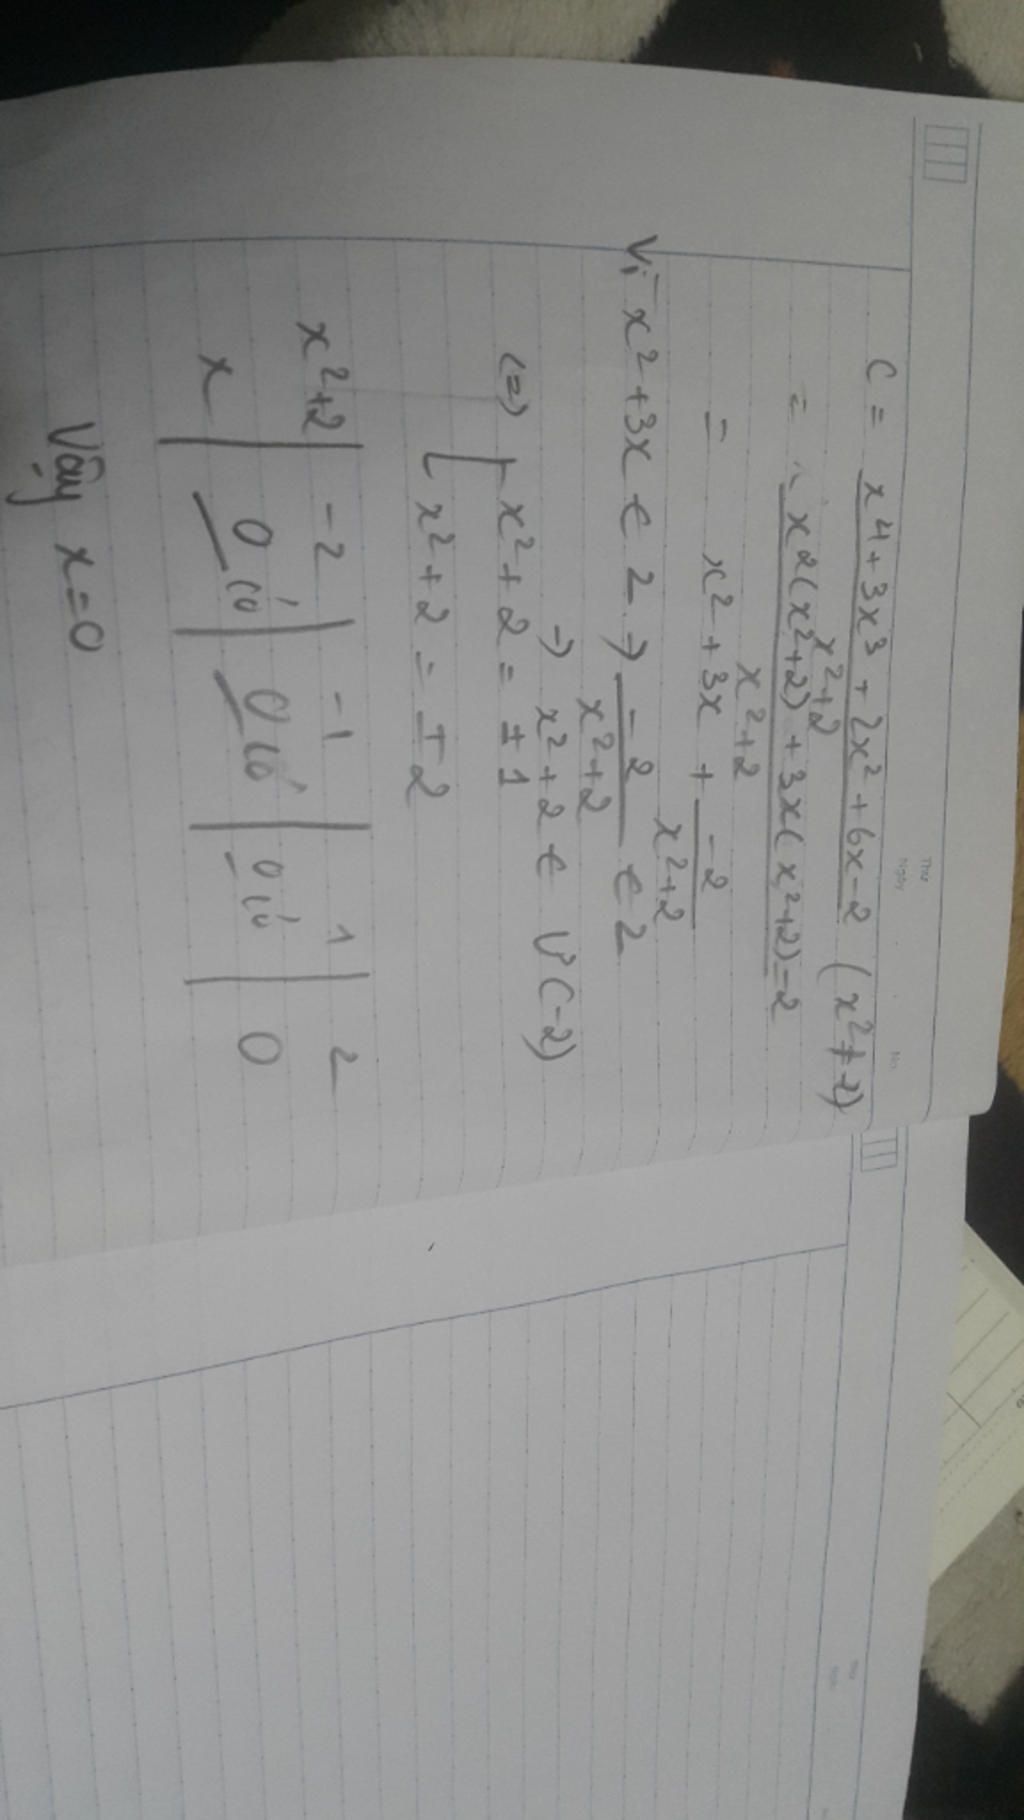 Thứ
Ngày
No.
C = x⁴ + 3x³ + 2x² + 6x - 2 (x² ≠ -2)
x² + 2
= x²(x² + 2) + 3x(x² + 2) - 2
x² + 2
= x² + 3x + -2
x² + 2
Vì x² + 3x ∈ Z → -2 ∈ Z
x² + 2
→ x² + 2 ∈ Ư(-2)
(=) [ x² + 2 = ± 1
[ x² + 2 = ± 2
x² + 2 | -2 | -1 | 1 | 2
x | 0 có | 0 có | 0 có | 0
Vậy x = 0